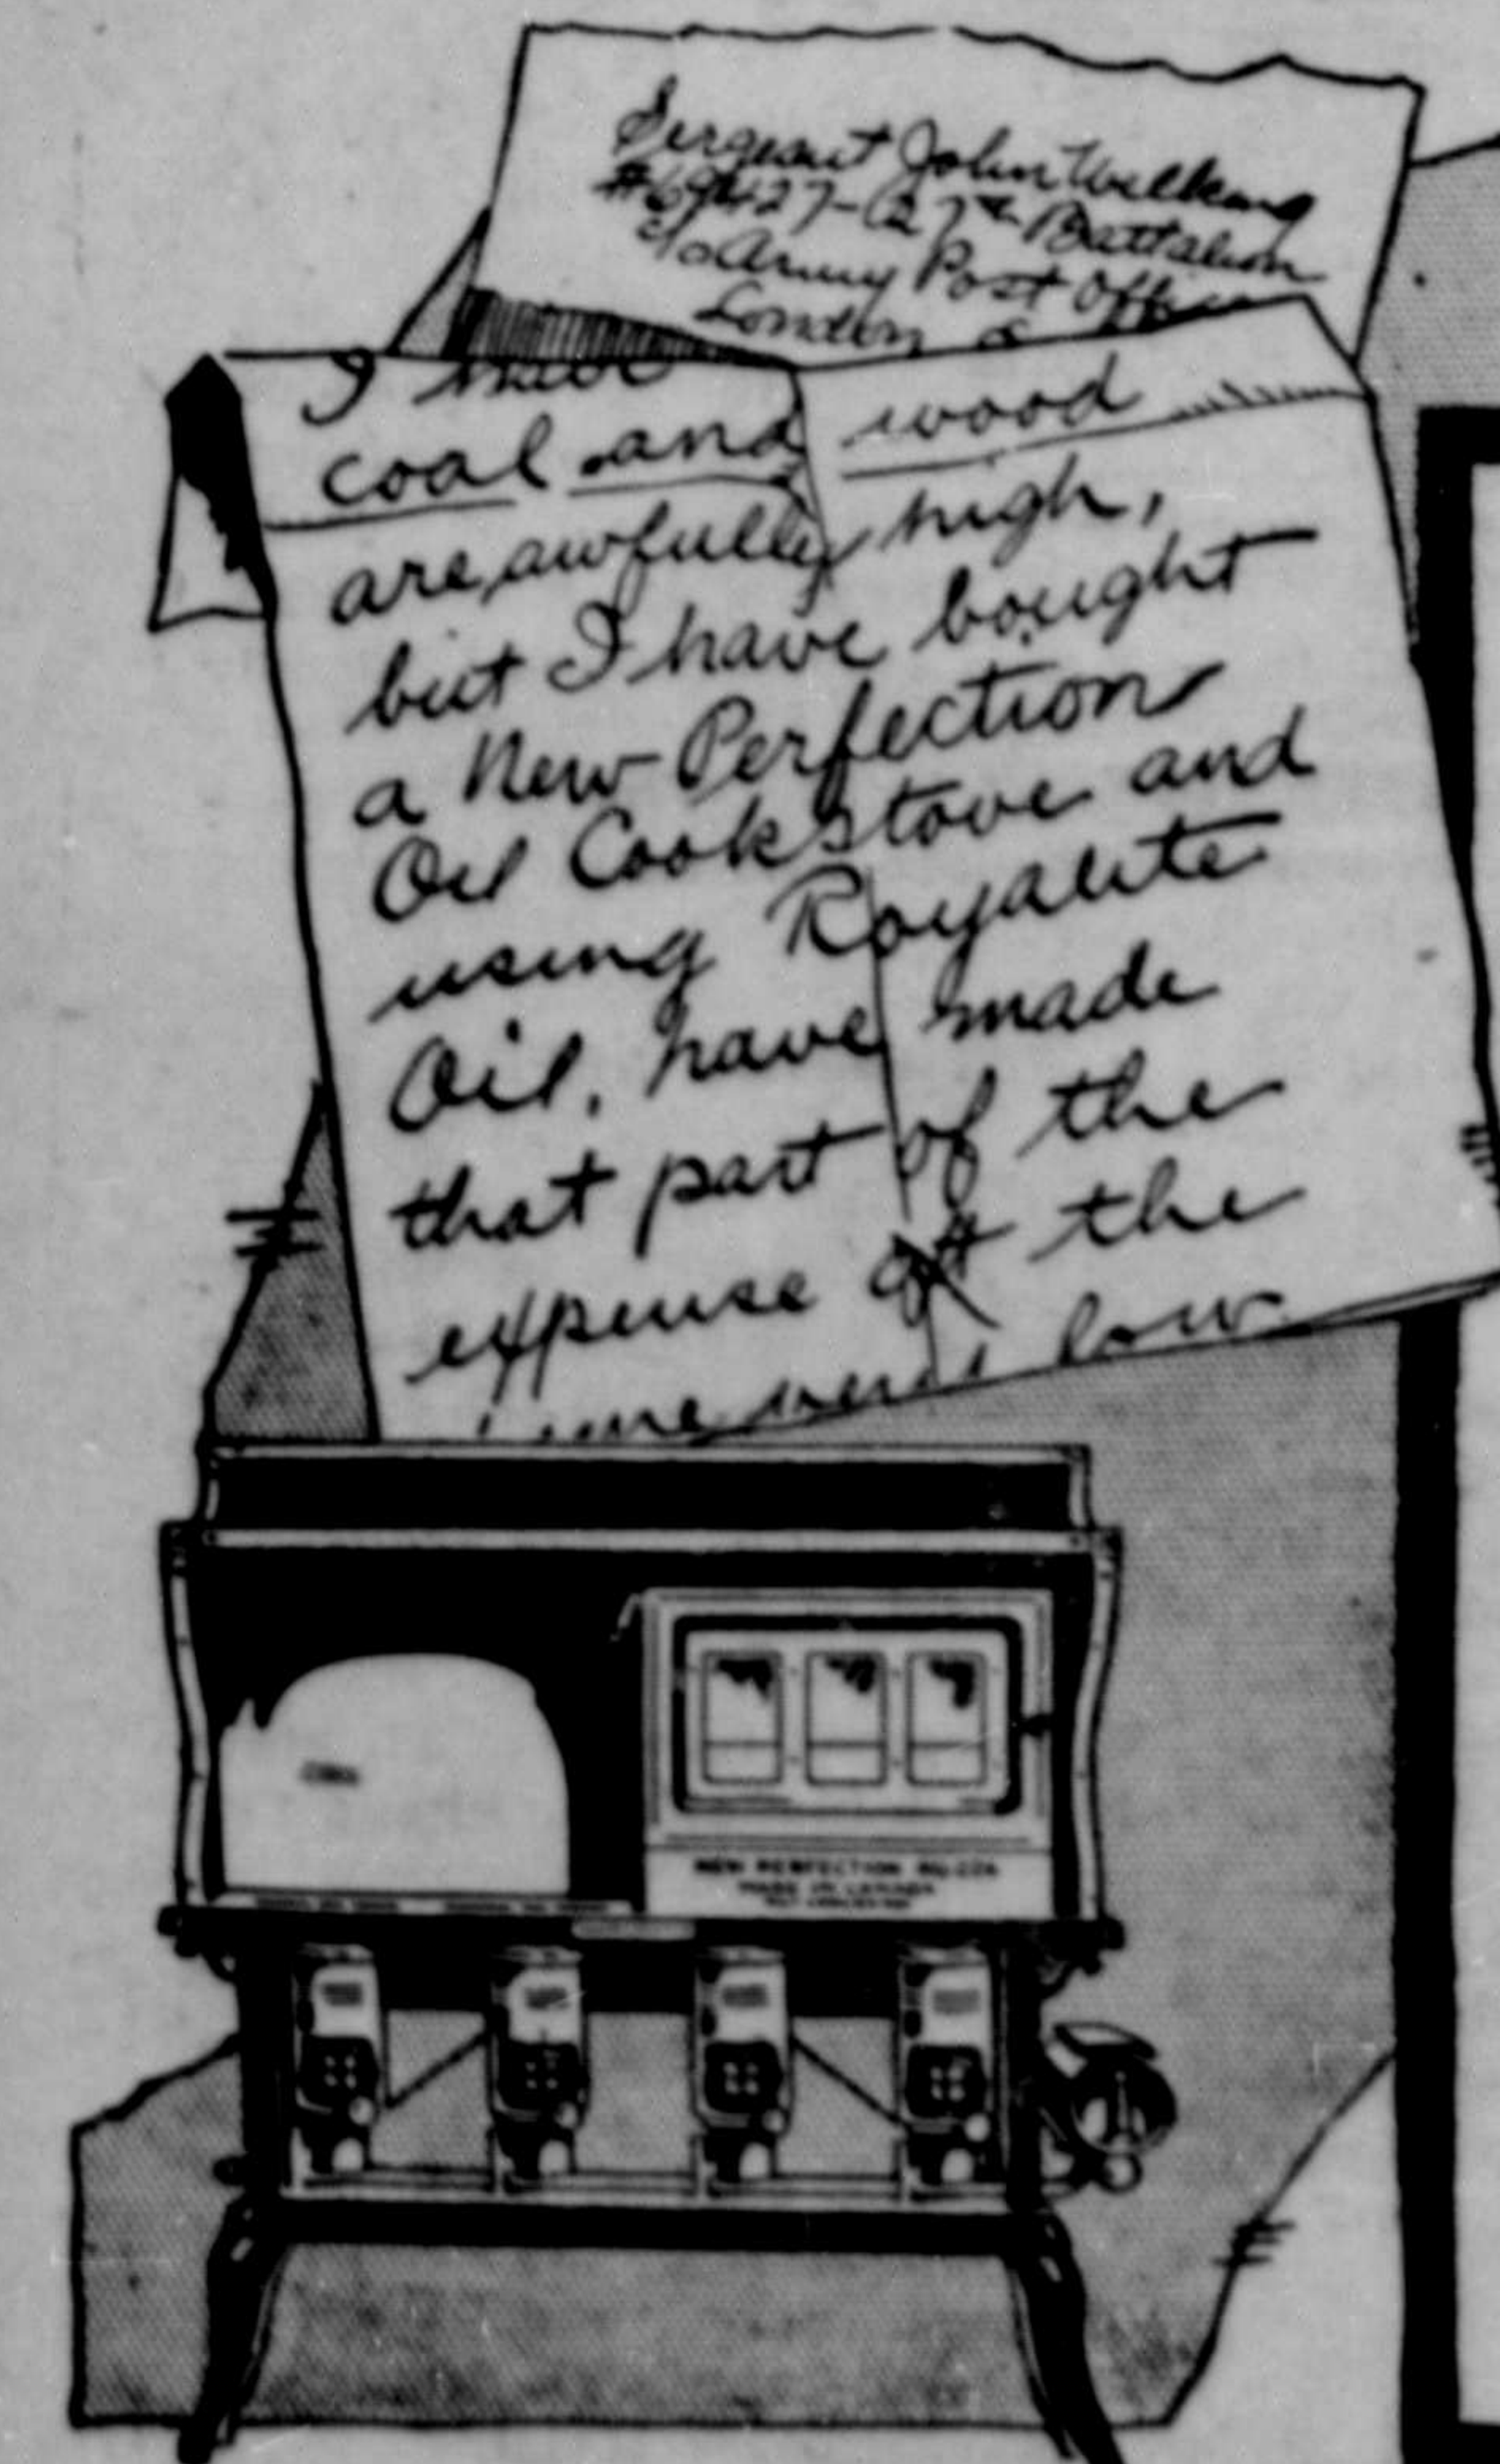 Sergeant John Wilkins
27th Battalion
c/o Army Post Office
London
I
coal and wood
are awfully high,
but I have bought
a New Perfection
Oil Cookstove and
using Royalite
Oil, have made
that part of the
expense of the
low
NEW PERFECTION
MADE IN CANADA